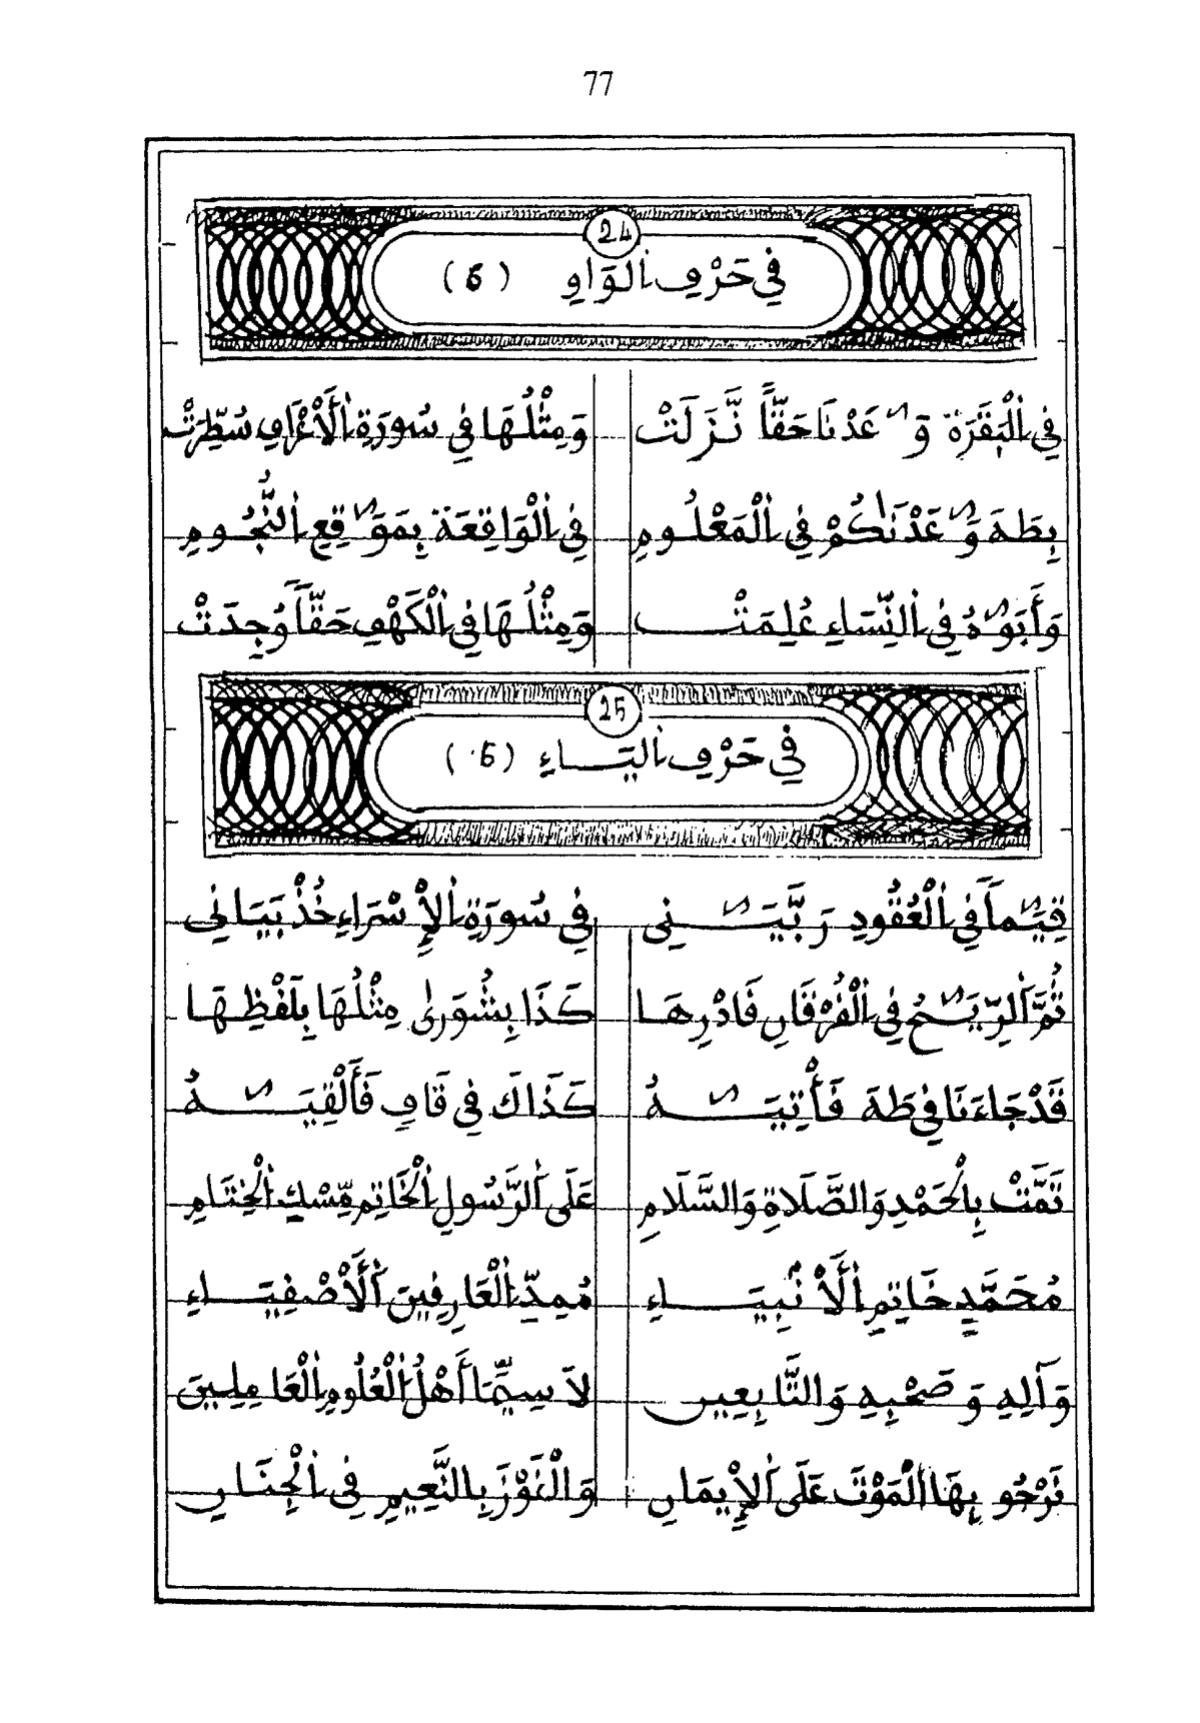 77
24
في حَرْفِ الوَاوِ (6)
فِي الْبَقَرَةِ وَعَدْنَا حَقّاً نَّزَلَتْ وَمِثْلُهَا فِي سُورَةِ الَأعْرَافِ سُطِّرَتْ
بِطَهَ وَعَدْنَاكُمْ فِي الْمَعْلُومِ فِي الْوَاقِعَة بِمَوَقِعِ النُّجُومِ
وَأَبَوَهُ فِي النِّسَاءِ عُلِمَتْ وَمِثْلُهَا فِي الْكَهْفِ حَقّاً وُجِدَتْ
25
فِي حَرْفِ اليَاءِ (6)
قِيَماً فِي الْعُقُودِ رَبَّيَنِي فِي سُورَةِ الإِسْرَاءِ خُذْ بَيَانِي
ثُمَّ الرِّيَحُ فِي الْفُرْقَانِ فَادْرِهَا كَذَا بِشُورَى مِثْلُهَا بِلَفْظِهَا
قَدْ جَاءَنَا فِي طَهَ فَأْتِيَهُ كَذَاكَ فِي قَافِ فَأَلْقِيَهُ
تَمَّتْ بِالْحَمْدِ وَالصَّلَاةِ وَالسَّلَامِ عَلَى الرَّسُولِ الْخَاتِمِ مِّسْكِ الْخِتَامِ
مُحَمَّدٍ خَاتِمِ الَأنْبِيَاءِ مُمِدِّ الْعَارِفِينَ الَأصْفِيَاءِ
وَآلِهِ وَصَحْبِهِ وَالتَّابِعِين لاَ سِيَّمَا أَهْلُ الْعُلُومِ الْعَامِلِينَ
نَرْجُو بِهَا الْمَوْتَ عَلَى الإِيمَانِ وَالْفَوْزَ بِالنَّعِيمِ فِي الْجِنَانِ